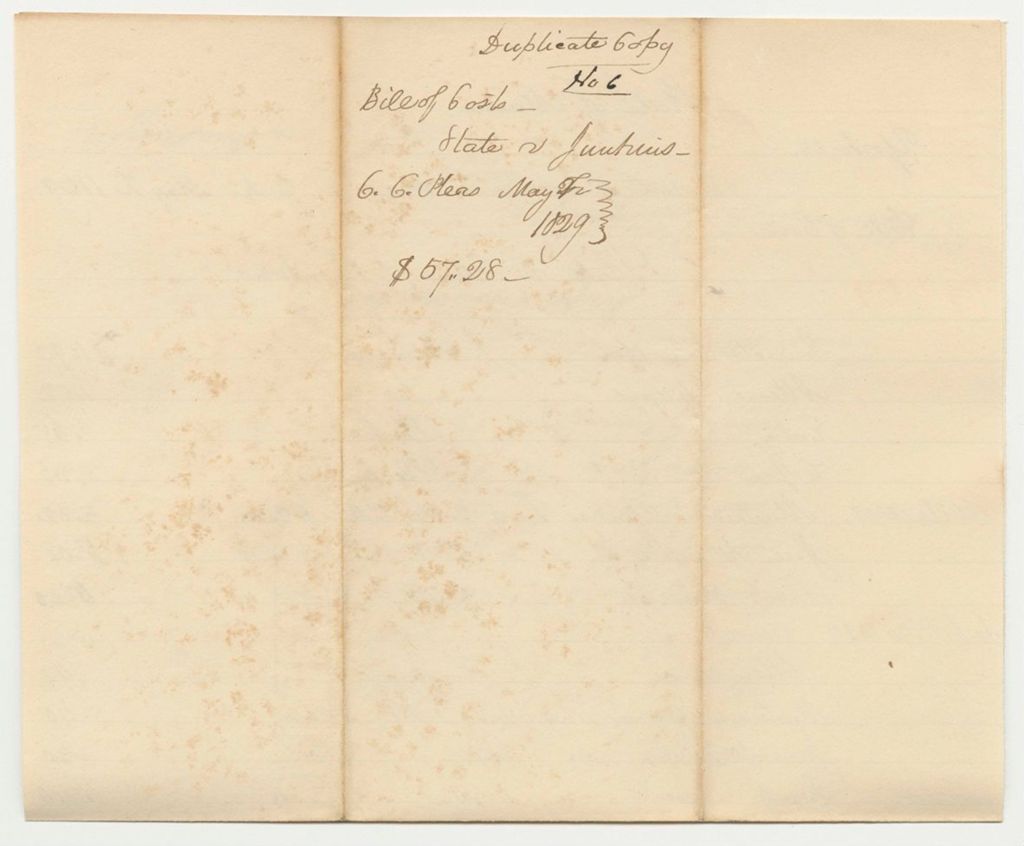 Duplicate Copy
No 6
Bill of Costs –
State v Junkins –
C. C. Pleas May Tr
1829
$57..28 –